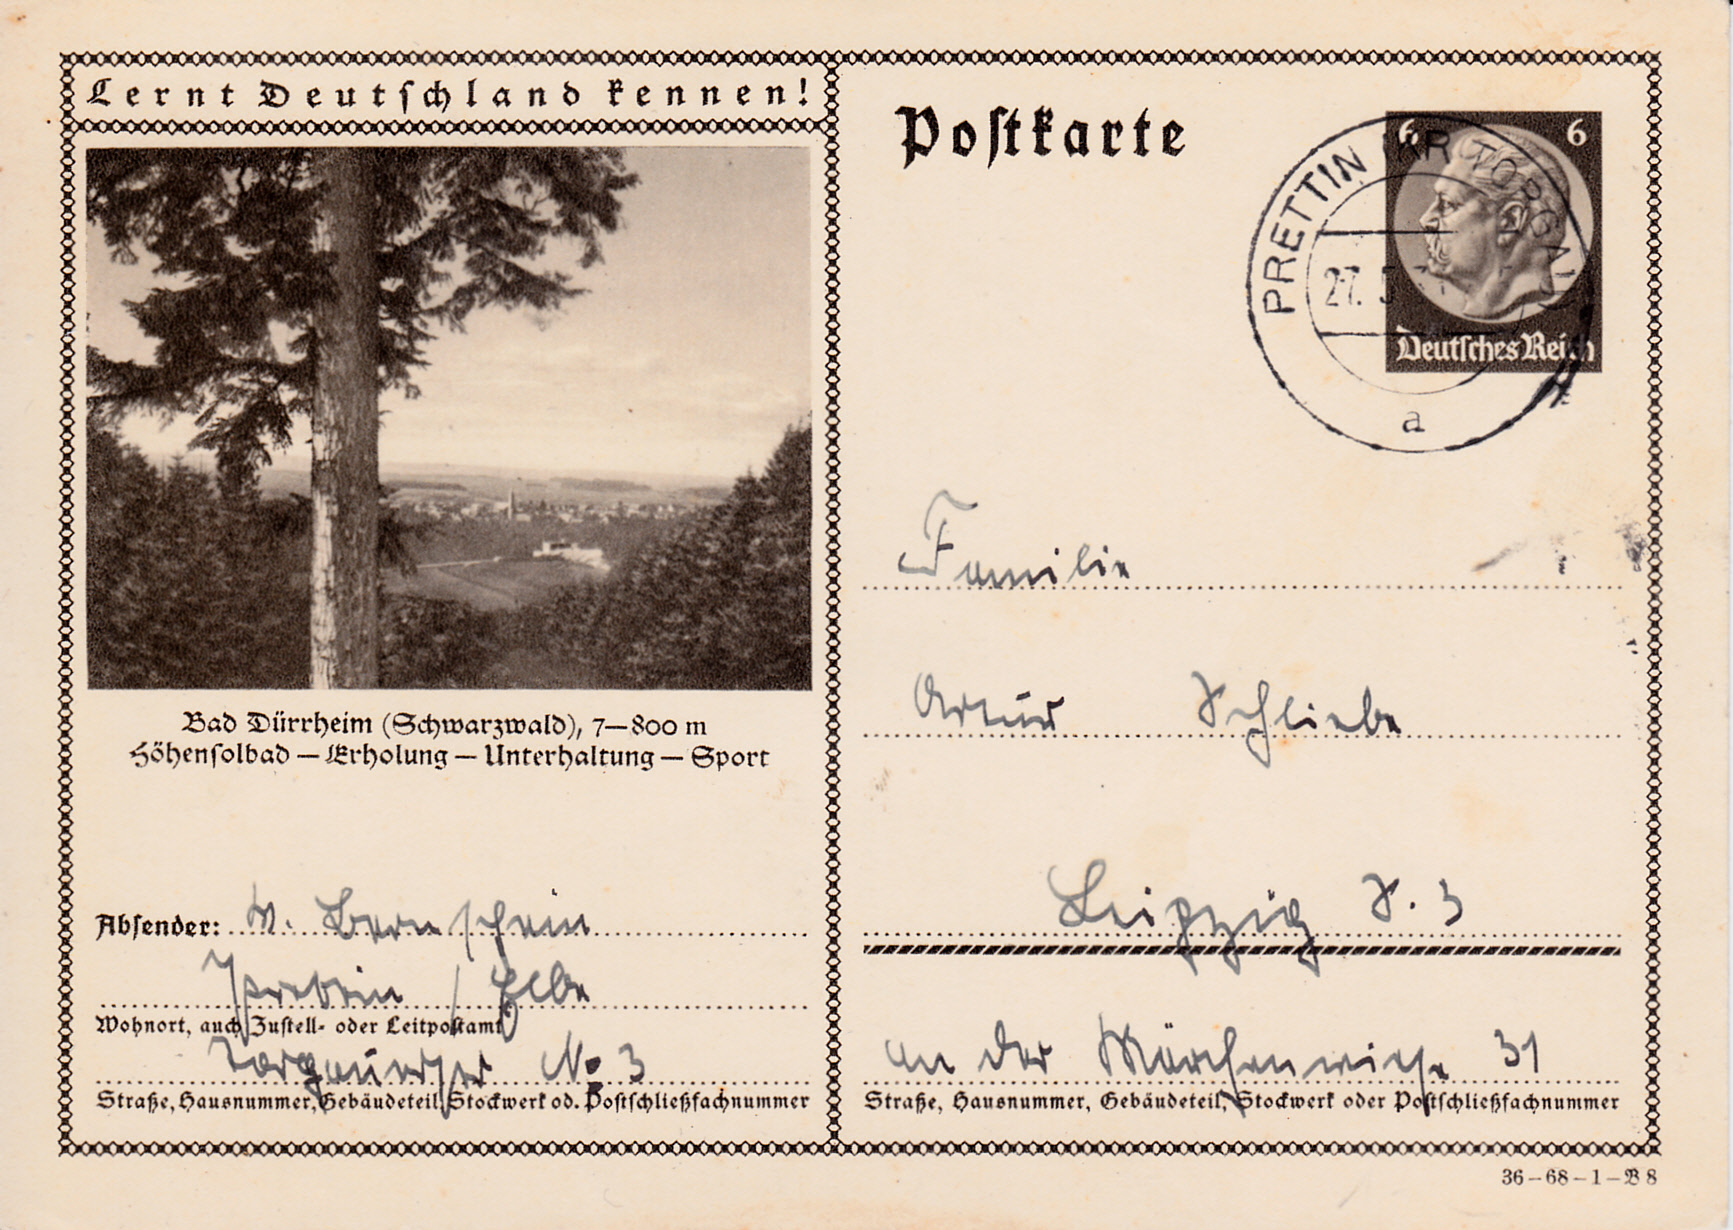 Lernt Deutschland kennen!
Bad Dürrheim (Schwarzwald), 7–800 m
Höhensolbad – Erholung – Unterhaltung – Sport
Absender: W. Bernschein
Prettin / Elbe
Wohnort, auch Zustell- oder Leitpostamt
Torgauer No 3
Straße, Hausnummer, Gebäudeteil, Stockwerk od. Postschließfachnummer
Postkarte
6 6
Deutsches Reich
PRETTIN KR TORGAU
27. 5
a
Familie
Artur Schliebe
Leipzig S. 3
An der Märchenwiese 31
Straße, Hausnummer, Gebäudeteil, Stockwerk oder Postschließfachnummer
36–68–1–B 8